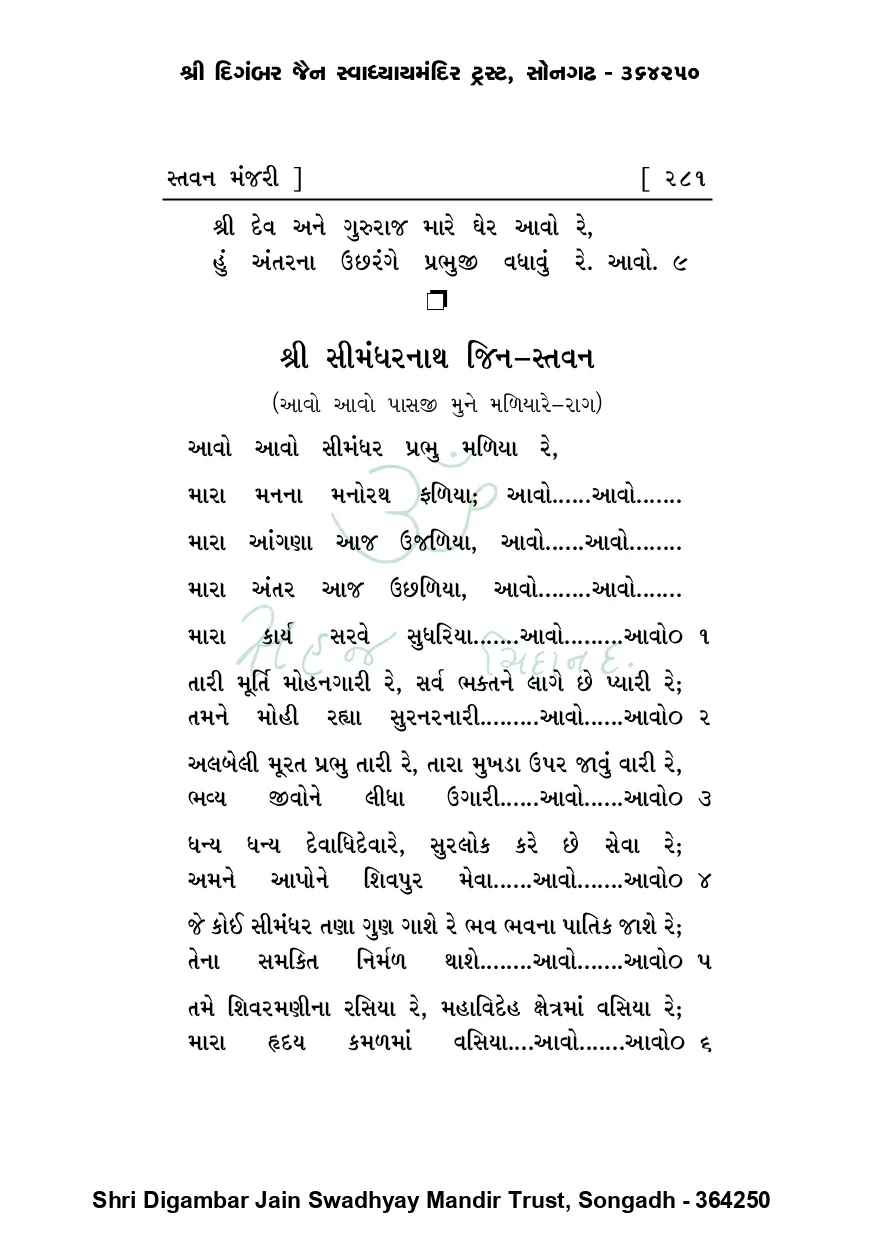 શ્રી દિગંબર જૈન સ્વાધ્યાયમંદિર ટ્રસ્ટ, સોનગઢ - ૩૬૪૨૫૦
સ્તવન મંજરી ] [ ૨૮૧
શ્રી દેવ અને ગુરુરાજ મારે ઘેર આવો રે,
હું અંતરના ઉછરંગે પ્રભુજી વધાવું રે. આવો. ૯
શ્રી સીમંધરનાથ જિન–સ્તવન
(આવો આવો પાસજી મુને મળિયારે–રાગ)
આવો આવો સીમંધર પ્રભુ મળિયા રે,
મારા મનના મનોરથ ફળિયા; આવો......આવો.......
મારા આંગણા આજ ઉજળિયા, આવો......આવો........
મારા અંતર આજ ઉછળિયા, આવો........આવો.......
મારા કાર્ય સરવે સુધરિયા.......આવો.........આવો૦ ૧
તારી મૂર્તિ મોહનગારી રે, સર્વ ભક્તને લાગે છે પ્યારી રે;
તમને મોહી રહ્યા સુરનરનારી.........આવો......આવો૦ ૨
અલબેલી મૂરત પ્રભુ તારી રે, તારા મુખડા ઉપર જાવું વારી રે,
ભવ્ય જીવોને લીધા ઉગારી......આવો......આવો૦ ૩
ધન્ય ધન્ય દેવાધિદેવારે, સુરલોક કરે છે સેવા રે;
અમને આપોને શિવપુર મેવા......આવો.......આવો૦ ૪
જે કોઈ સીમંધર તણા ગુણ ગાશે રે ભવ ભવના પાતિક જાશે રે;
તેના સમકિત નિર્મળ થાશે........આવો.......આવો૦ ૫
તમે શિવરમણીના રસિયા રે, મહાવિદેહ ક્ષેત્રમાં વસિયા રે;
મારા હૃદય કમળમાં વસિયા....આવો.......આવો૦ ૬
ૐ
સહજ ચિદાનંદ.
Shri Digambar Jain Swadhyay Mandir Trust, Songadh - 364250